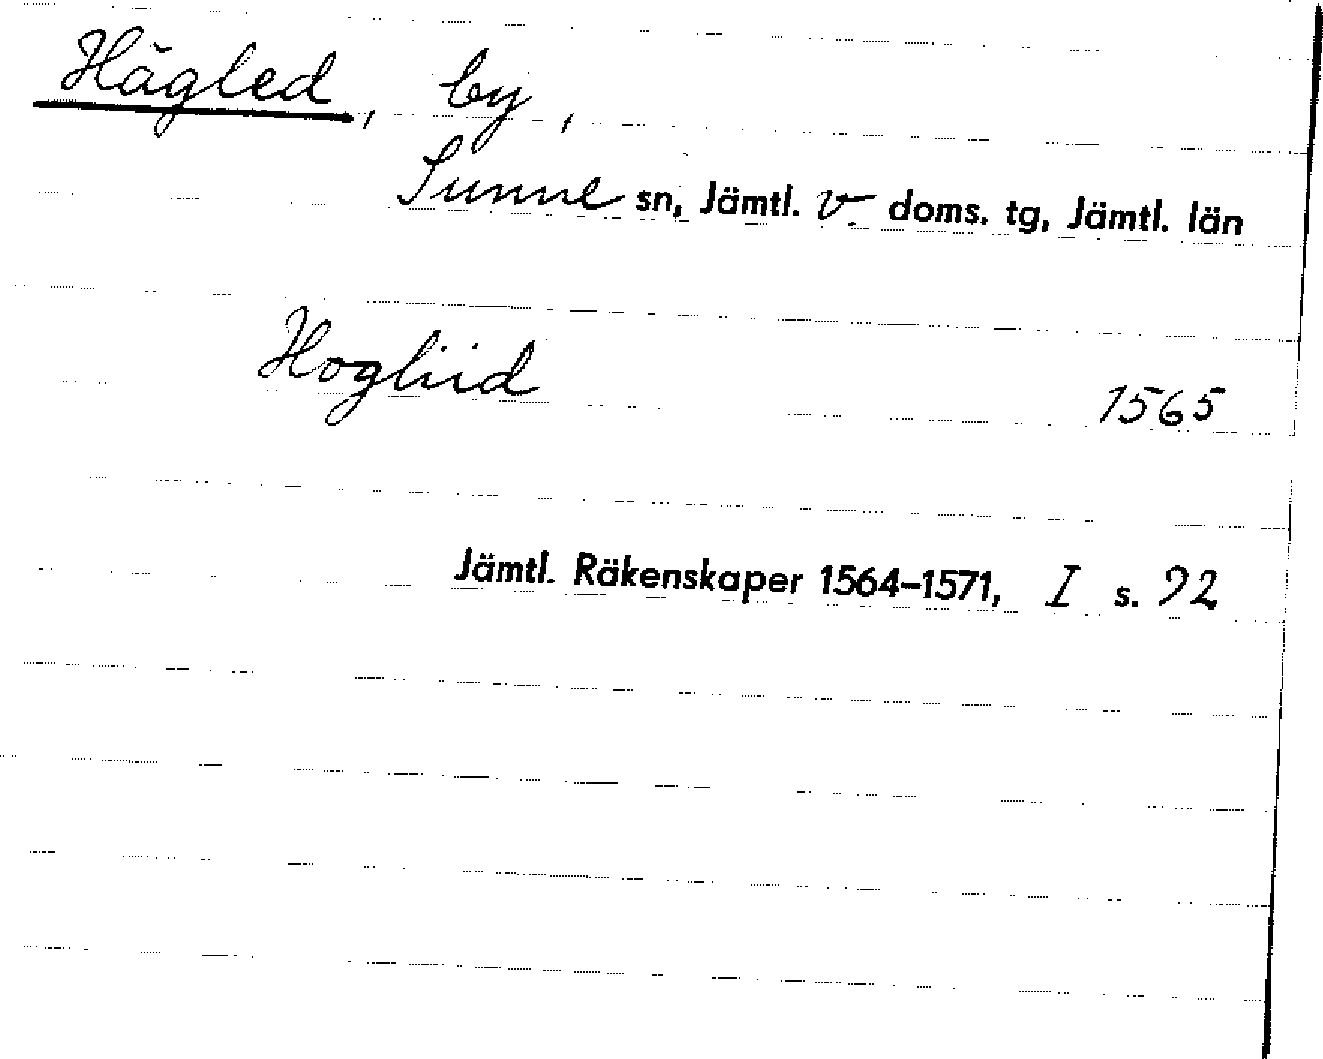 Hägled, by,
Sunne sn, Jämtl. v doms. tg, Jämtl. län
Hogliid 1565
Jämtl. Räkenskaper 1564–1571, I s. 92